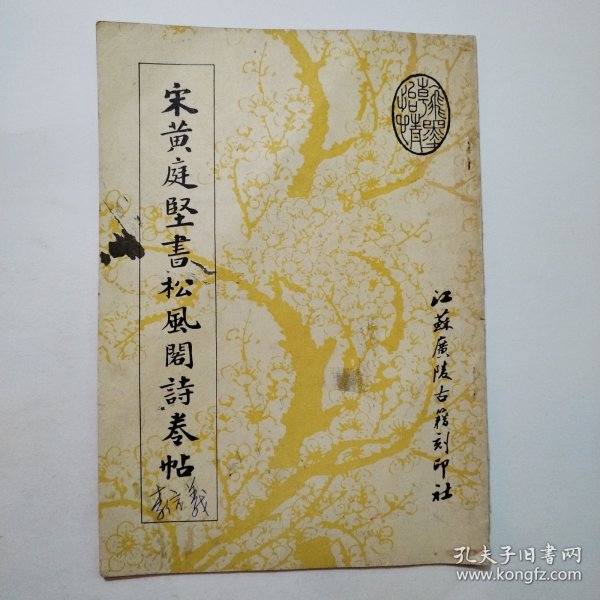 宋黄庭堅書松風閣詩卷帖
江蘇廣陵古籍刻印社
孔夫子旧书网
www.kongfz.com